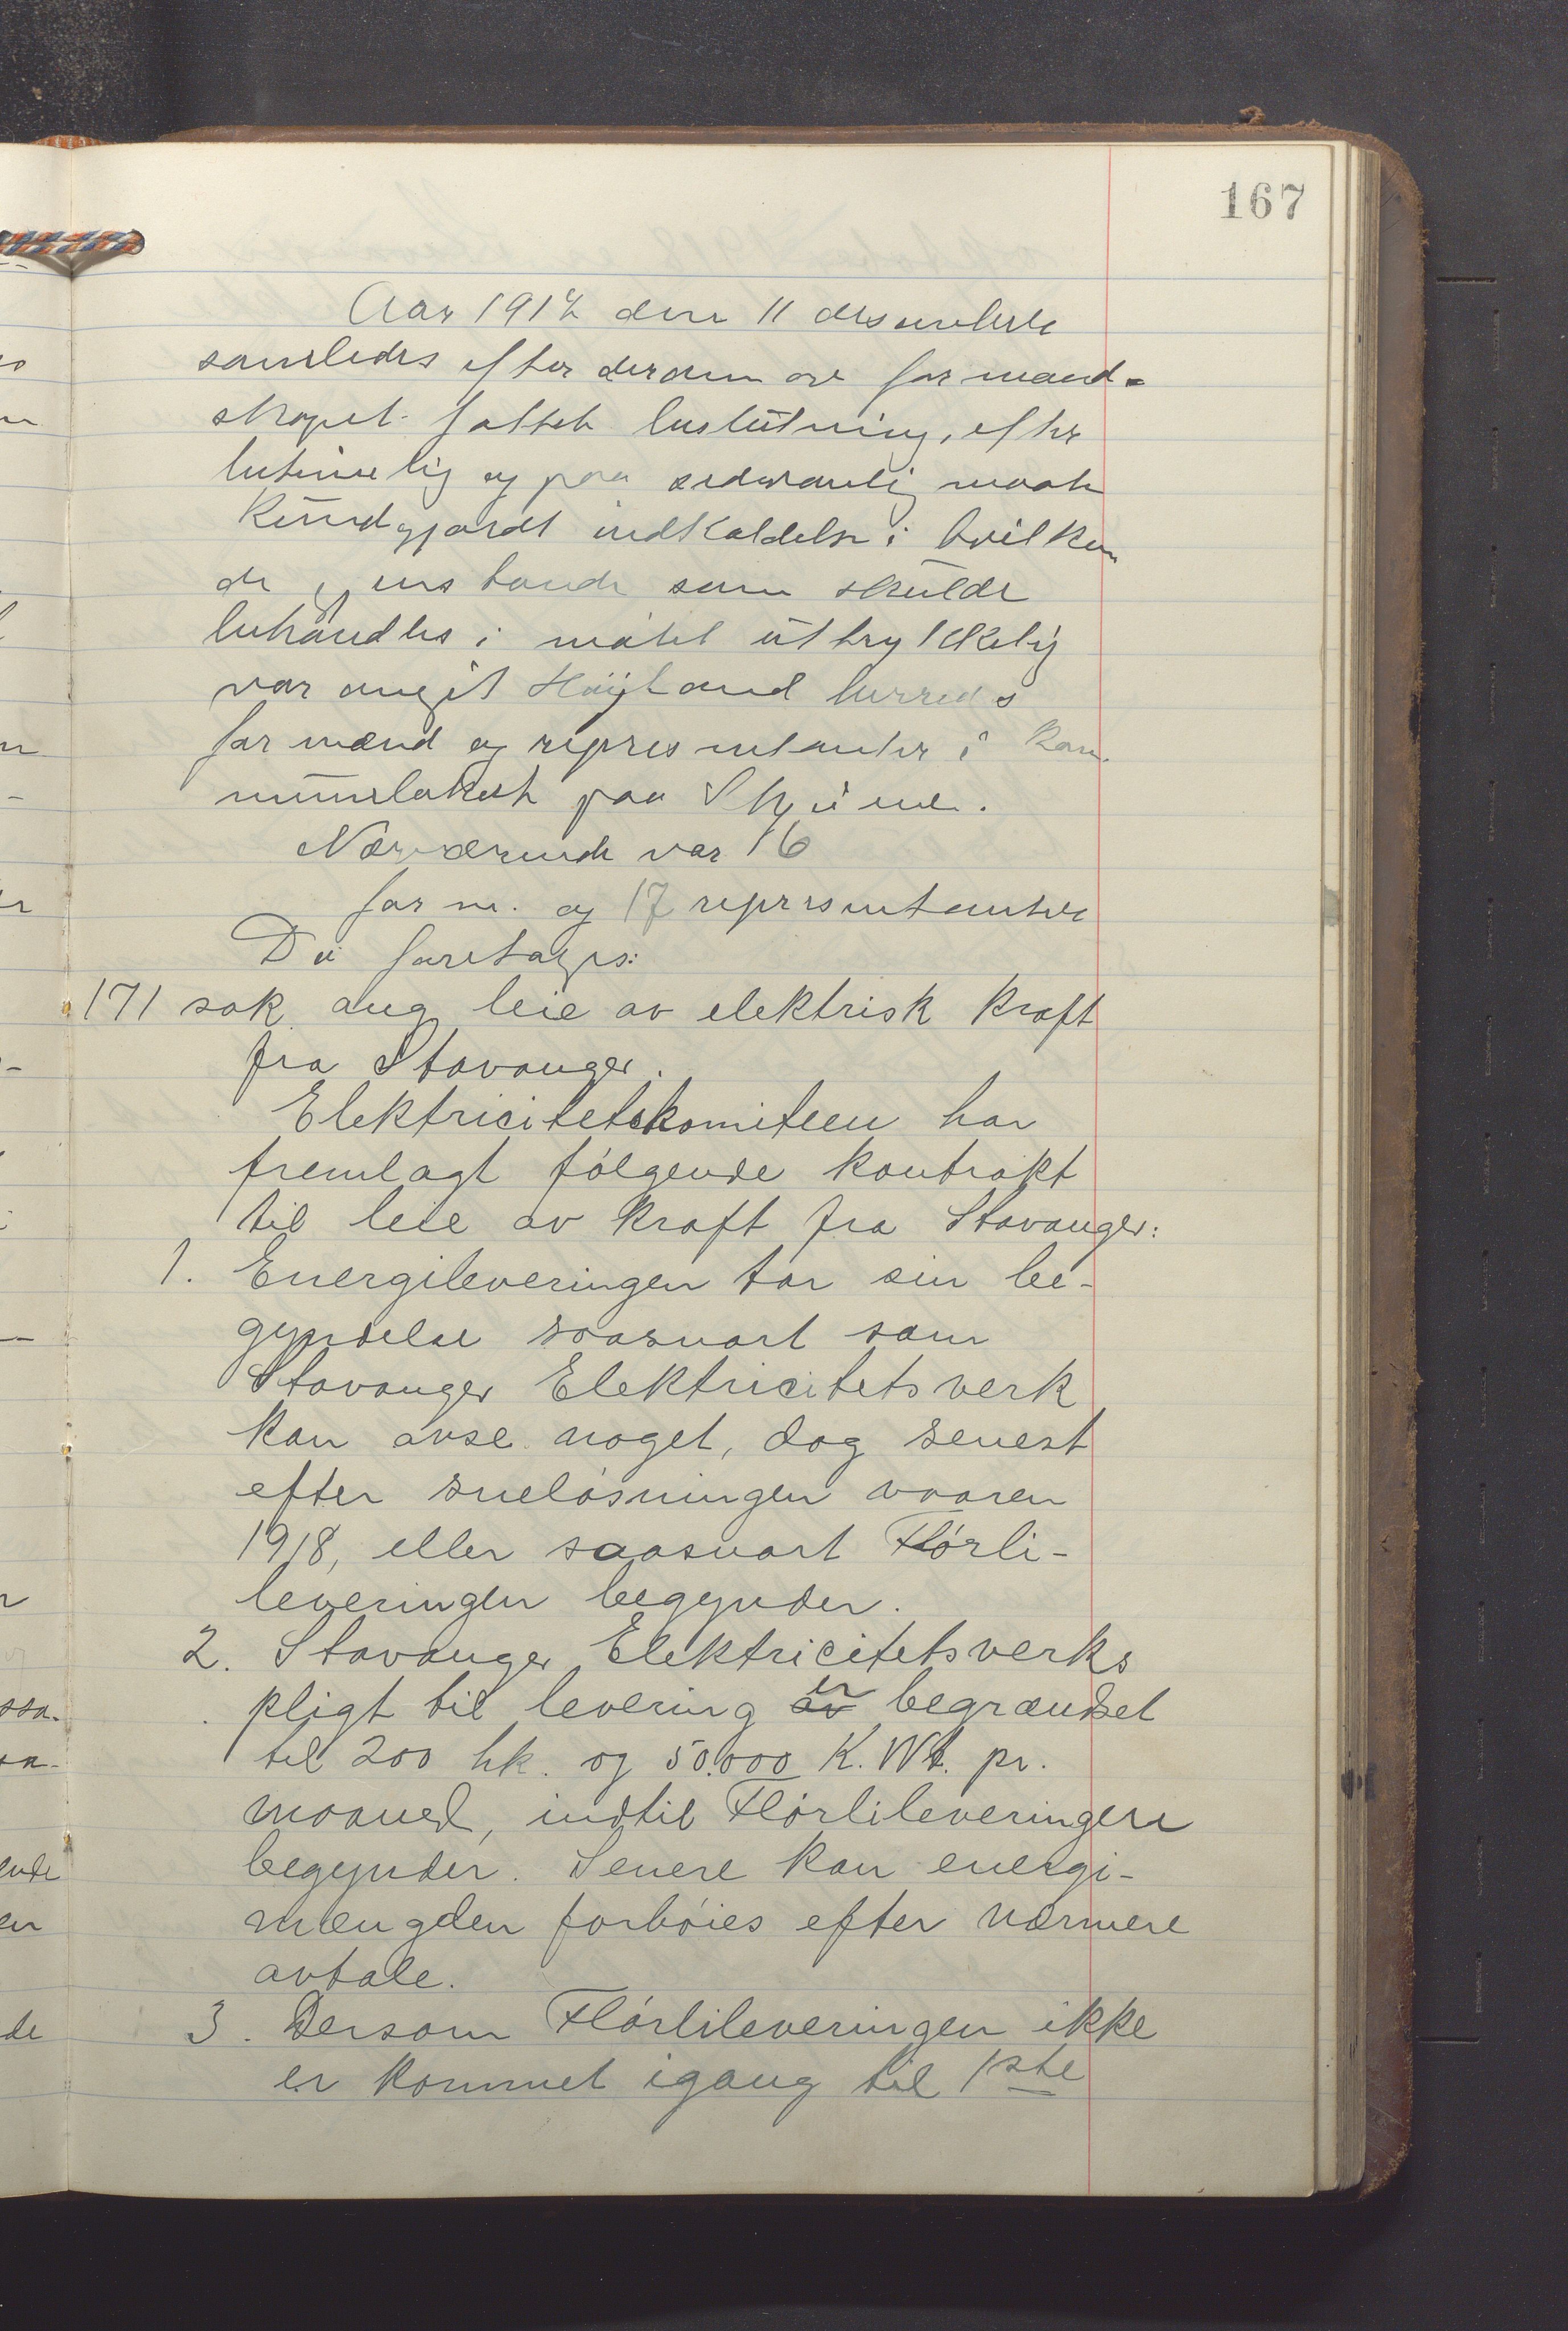 167
Aar 1917 den 11 desember
samledes efter derom av formand-
skapet fattet beslutning, efter
betimelig og paa sedvanlig maate
kundgjordt indkaldelse i hvilken
de gjenstande som skulde
behandles i møtet uttrykkelig
var angit Høiland herreds
formænd og representanter i kom-
munelokalet paa Skjæve.
Nærværende var 16
form. og 17 representanter
Da foretages:
171 sak ang leie av elektrisk kraft
fra Stavanger.
Elektricitetskomiteen har
fremlagt følgende kontrakt
til leie av kraft fra Stavanger:
1. Energileveringen tar sin be-
gyndelse saasnart som
Stavanger Elektricitetsverk
kan avse noget, dog senest
efter sneløsningen vaaren
1918, eller saasnart Flørli-
leveringen begynder.
2. Stavanger Elektricitetsverks
pligt til levering er begrændset
til 200 hk. og 50.000 K.Wt. pr.
maaned, indtil Flørlileveringen
begynder. Senere kan energi-
mængden forhøies efter nærmere
avtale.
3. Dersom Flørlileveringen ikke
er kommet igang til 1ste